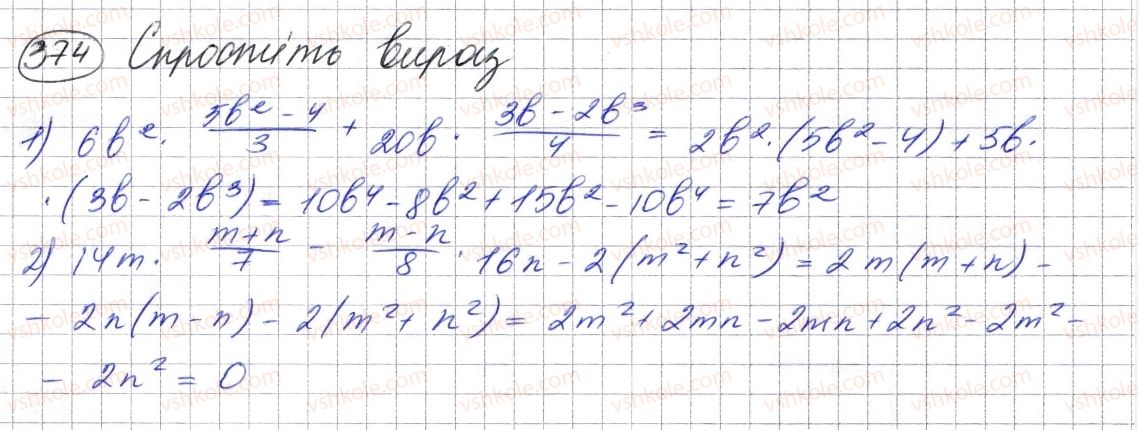 374 Спростіть вираз
1) 6b² · (5b² - 4)/3 + 20b · (3b - 2b³)/4 = 2b² · (5b² - 4) + 5b ·
· (3b - 2b³) = 10b⁴ - 8b² + 15b² - 10b⁴ = 7b²
2) 14m · (m + n)/7 - (m - n)/8 · 16n - 2(m² + n²) = 2m(m + n) -
- 2n(m - n) - 2(m² + n²) = 2m² + 2mn - 2mn + 2n² - 2m² -
- 2n² = 0